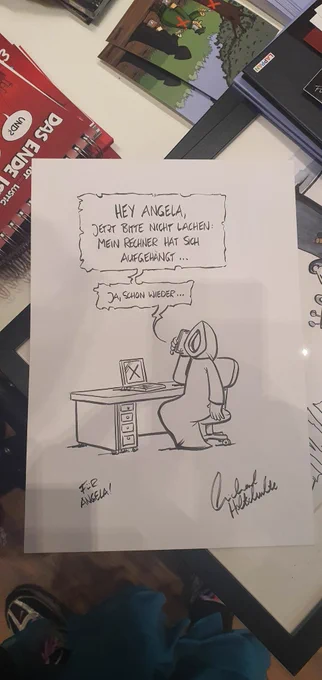 UND?
DAS ENDE IS
HEY ANGELA,
JETZT BITTE NICHT LACHEN:
MEIN RECHNER HAT SICH
AUFGEHÄNGT ...
JA, SCHON WIEDER ...
FÜR
ANGELA!